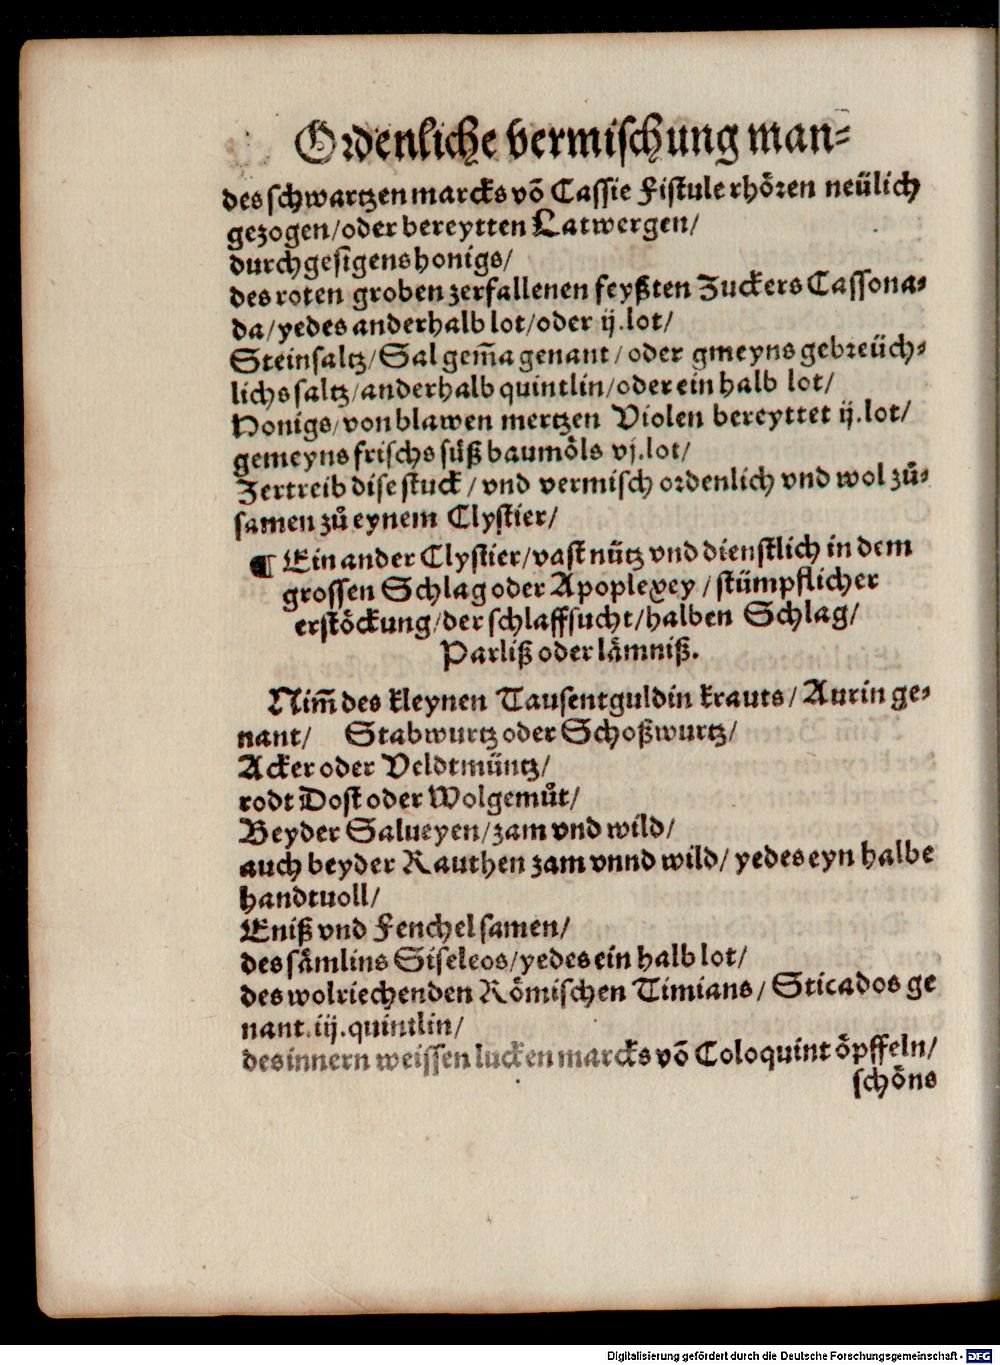 Ordenliche vermischung man⸗
des schwartzen marcks võ Cassie Fistule rhören neülich
gezogen/oder bereytten Latwergen/
durchgesigens honigs/
des roten groben zerfallenen feyßten Zuckers Cassona⸗
da/yedes anderhalb lot/oder ij.lot/
Steinsaltz/Sal gem̃a genant/oder gmeyns gebreüch⸗
lichs saltz/anderhalb quintlin/oder ein halb lot/
Honigs/von blawen mertzen Violen bereyttet ij.lot/
gemeyns frischs süß baumöls vj.lot/
Zertreib dise stuck/vnd vermisch ordenlich vnd wol zů⸗
samen zů eynem Clystier/
¶ Ein ander Clystier/vast nütz vnd dienstlich in dem
grossen Schlag oder Apoplexey/stümpflicher
erstöckung/der schlaffsucht/halben Schlag/
Parliß oder lämniß.
Nim̃ des kleynen Tausentguldin krauts/Aurin ge⸗
nant/ Stabwurtz oder Schoßwurtz/
Acker oder Veldtmüntz/
rodt Dost oder Wolgemůt/
Beyder Salueyen/zam vnd wild/
auch beyder Rauthen zam vnnd wild/yedes eyn halbe
handtuoll/
Eniß vnd Fenchel samen/
des sämlins Siseleos/yedes ein halb lot/
des wolriechenden Römischen Timians/Sticados ge
nant.iij.quintlin/
des innern weissen lucken marcks võ Coloquint öpffeln/
schöns
Digitalisierung gefördert durch die Deutsche Forschungsgemeinschaft - DFG